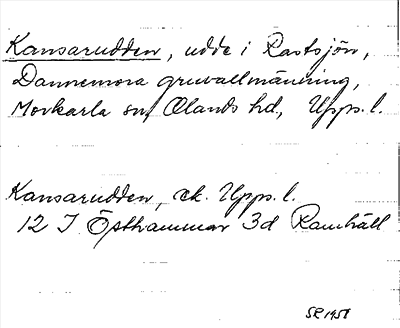 Kansarudden, udde i Rastsjön,
Dannemora gruvallmänning,
Morkarla sn, Olands hd, Upps. l.
Kansarudden, ek. Upps. l.
12 I Östhammar 3d Ramhäll
SR 1958